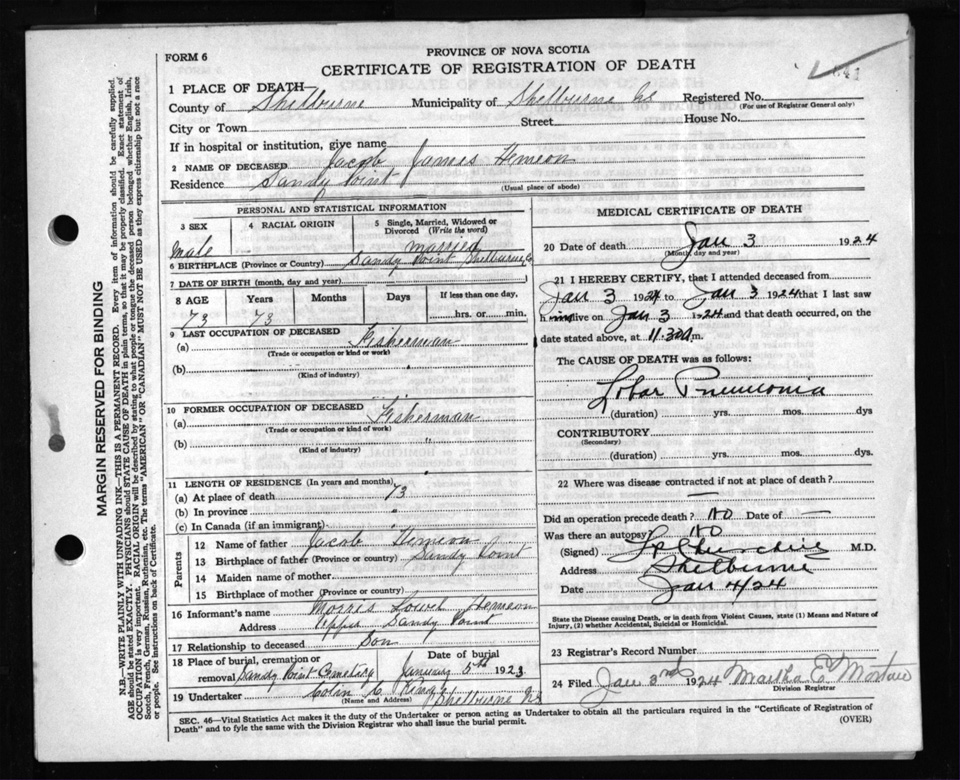 FORM 6
PROVINCE OF NOVA SCOTIA
CERTIFICATE OF REGISTRATION OF DEATH
41
1 PLACE OF DEATH
County of Shelburne Municipality of Shelburne NS Registered No.
(For use of Registrar General only)
City or Town Street House No.
If in hospital or institution, give name
2 NAME OF DECEASED Jacob James Hemeon
Residence Sandy Point
(Usual place of abode)
MARGIN RESERVED FOR BINDING
N.B.—WRITE PLAINLY WITH UNFADING INK—THIS IS A PERMANENT RECORD. Every item of information should be carefully supplied.
AGE should be stated EXACTLY. PHYSICIANS should STATE CAUSE OF DEATH in plain terms, so that it may be properly classified. Exact statement of
OCCUPATION is very important. RACIAL ORIGIN will be described by stating to what people or tongue the deceased person belonged whether English, Irish,
Scotch, French, German, Russian, Ruthenian, etc. The terms "AMERICAN" OR "CANADIAN" MUST NOT BE USED as they express citizenship but not a race
or people. See instructions on back of Certificate.
PERSONAL AND STATISTICAL INFORMATION
3 SEX 4 RACIAL ORIGIN 5 Single, Married, Widowed or
Divorced (Write the word)
Male married
6 BIRTHPLACE (Province or Country) Sandy Point Shelburne Co
7 DATE OF BIRTH (month, day and year)
8 AGE Years Months Days If less than one day,
73 73 hrs. or min.
9 LAST OCCUPATION OF DECEASED
(a) Fisherman
(Trade or occupation or kind or work)
(b) "
(Kind of industry)
10 FORMER OCCUPATION OF DECEASED
(a) Fisherman
(Trade or occupation or kind of work)
(b) "
(Kind of industry)
11 LENGTH OF RESIDENCE (In years and months)
(a) At place of death 73
(b) In province "
(c) In Canada (if an immigrant)
Parents
12 Name of father Jacob Hemeon
13 Birthplace of father (Province or country) Sandy Point
14 Maiden name of mother
15 Birthplace of mother (Province or country)
16 Informant's name Lowel Hemeon
Address Upper Sandy Point
17 Relationship to deceased Son
18 Place of burial, cremation or Date of burial
removal Sandy Point Cemetery January 5th 1923
19 Undertaker Colin C
(Name and Address) Shelburne NS
MEDICAL CERTIFICATE OF DEATH
20 Date of death Jan 3 1924
(Month, day and year)
21 I HEREBY CERTIFY, that I attended deceased from
Jan 3 1924 to Jan 3 1924 that I last saw
him alive on Jan 3 1924 and that death occurred, on the
date stated above, at 11.30 a m.
The CAUSE OF DEATH was as follows:
Lobar Pneumonia
(duration) yrs. mos. dys
CONTRIBUTORY
(Secondary)
(duration) yrs. mos. dys.
22 Where was disease contracted if not at place of death?
—
Did an operation precede death? No Date of —
Was there an autopsy? No
(Signed) Churchill M.D.
Address Shelburne
Date Jan 4/24
State the Disease causing Death, or in death from Violent Causes, state (1) Means and Nature of
Injury, (2) whether Accidental, Suicidal or Homicidal.
23 Registrar's Record Number
24 Filed Jan 3rd 1924 Martha E
Division Registrar
SEC. 46—Vital Statistics Act makes it the duty of the Undertaker or person acting as Undertaker to obtain all the particulars required in the "Certificate of Registration of
Death" and to fyle the same with the Division Registrar who shall issue the burial permit.
(OVER)